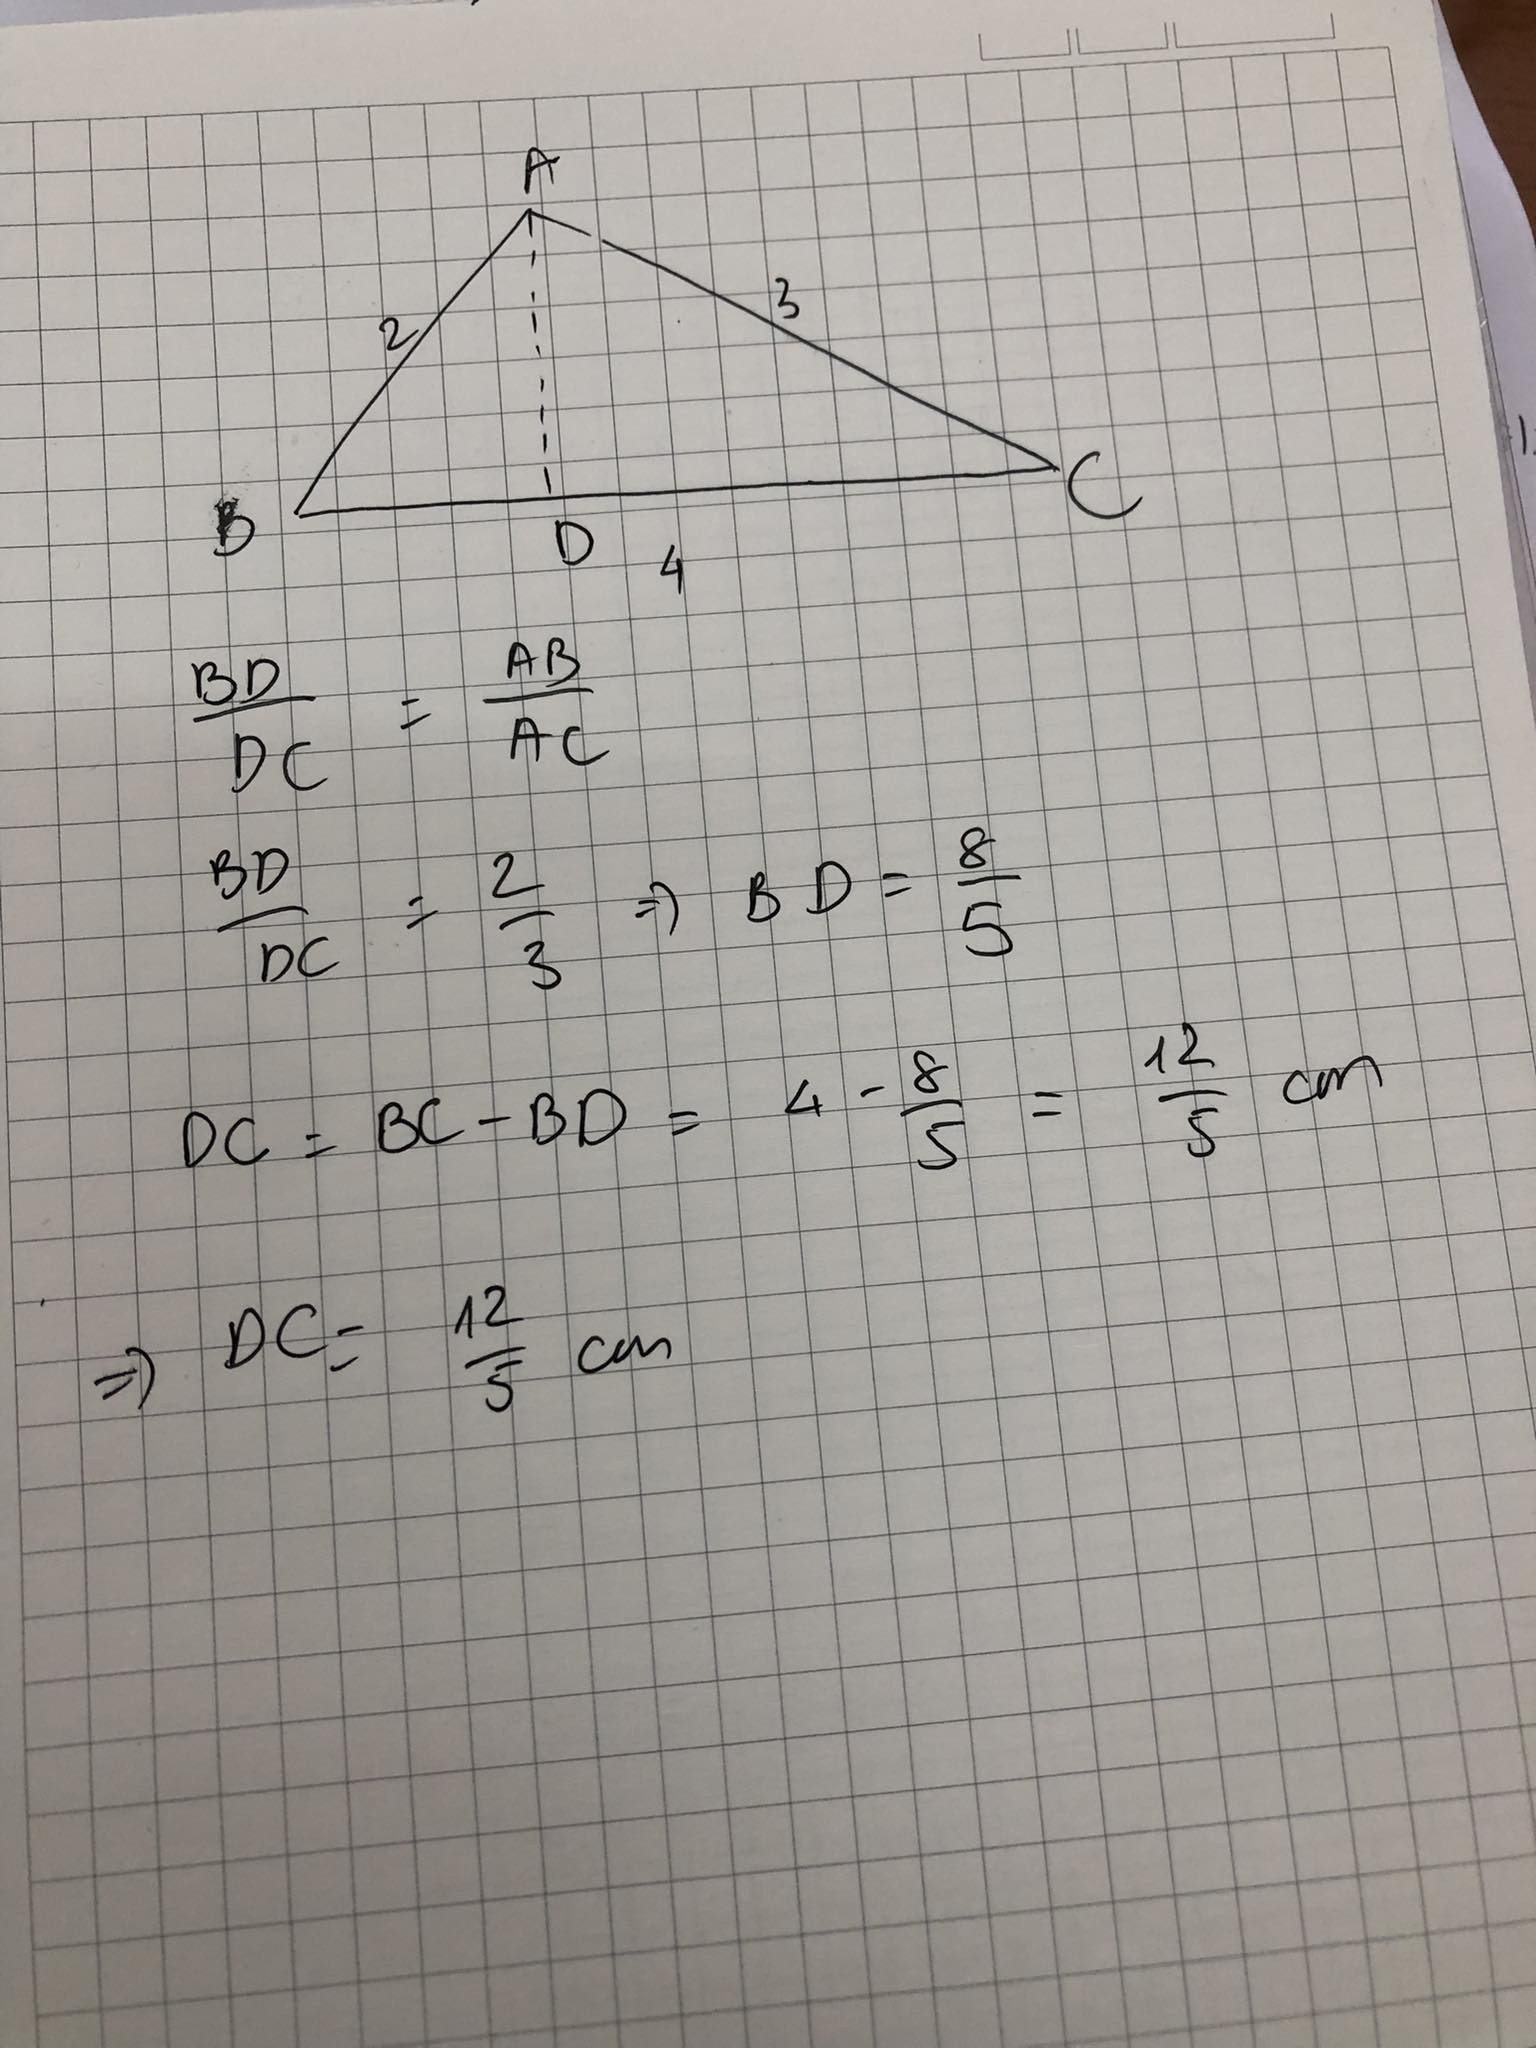 A
2
3
B
D
C
4
BD/DC = AB/AC
BD/DC = 2/3 => BD = 8/5
DC = BC - BD = 4 - 8/5 = 12/5 cm
=> DC = 12/5 cm